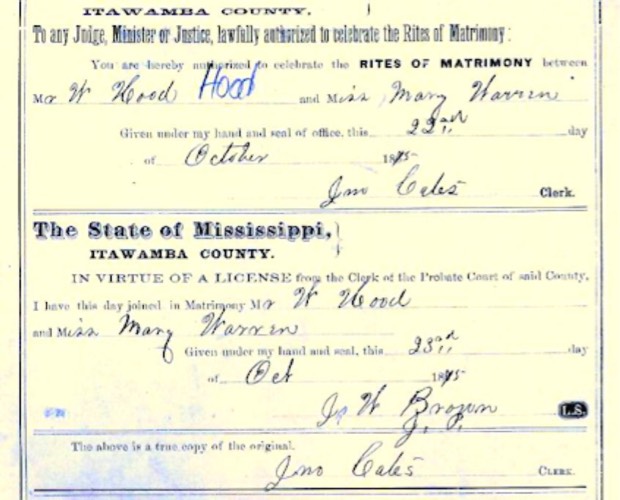 ITAWAMBA COUNTY.
To any Judge, Minister or Justice, lawfully authorized to celebrate the Rites of Matrimony:
You are hereby authorized to celebrate the RITES OF MATRIMONY between
Mr W Hood Hood and Miss Mary Warren
Given under my hand and seal of office, this 22nd day
of October 1875
Jno Cates Clerk.
The State of Mississippi,
ITAWAMBA COUNTY.
IN VIRTUE OF A LICENSE from the Clerk of the Probate Court of said County,
I have this day joined in Matrimony Mr W Hood
and Miss Mary Warren
Given under my hand and seal, this 23rd day
of Oct 1875
W Brown L.S.
J. P.
The above is a true copy of the original.
Jno Cates CLERK.